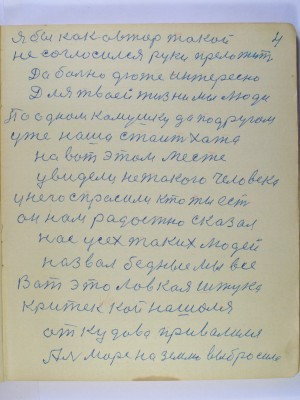 4
Я бы как овтар такой
не согласился руки преложит
Да болно дюже интересно
Для твоей жизни мы люди
По одном камушку да подругом
уже наша стаит хата
на вот этом месте
увидели нетакого человека
у него спрасили кто ты ест
он нам радостно сказал
нас усех таких людей
назвал бедные мы все
Ват это ловкая штука
Критек кой нашолся
от кудова привалили
на землю выбросила